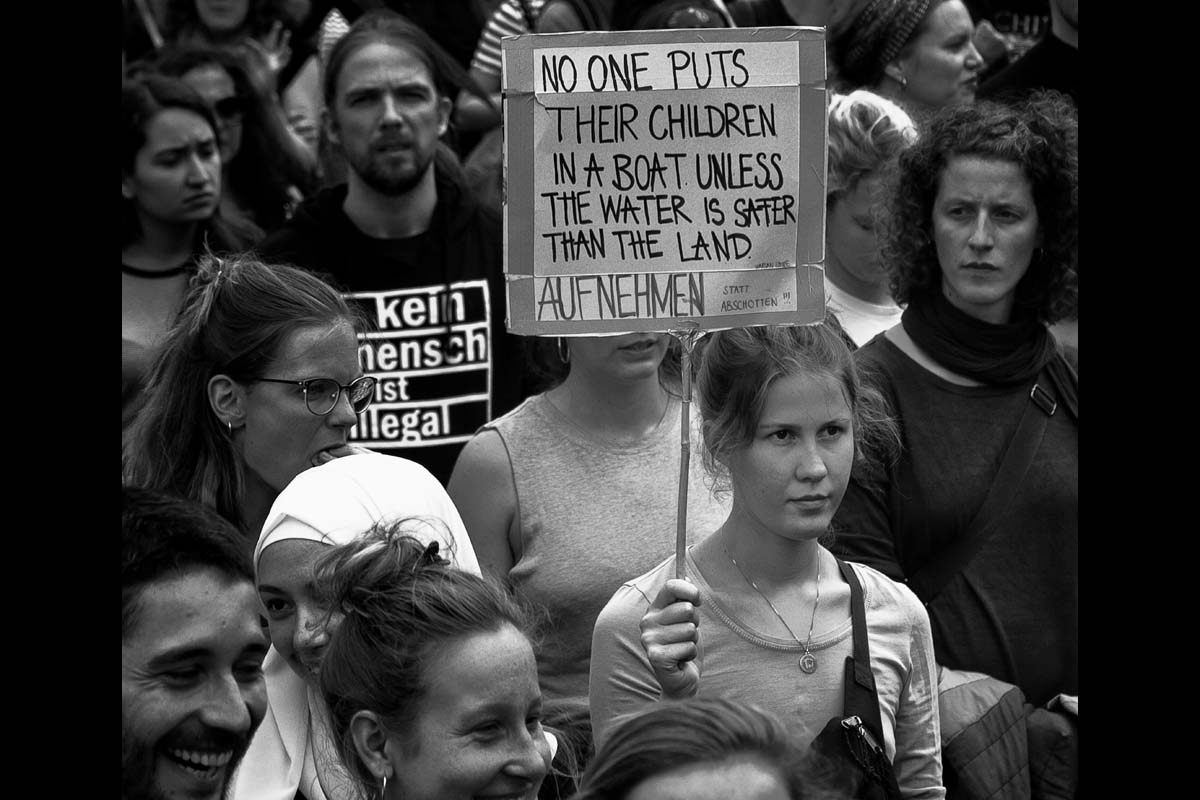 NO ONE PUTS
THEIR CHILDREN
IN A BOAT. UNLESS
THE WATER IS SAFER
THAN THE LAND.
AUFNEHMEN
STATT
ABSCHOTTEN !!!
kein
mensch
ist
illegal